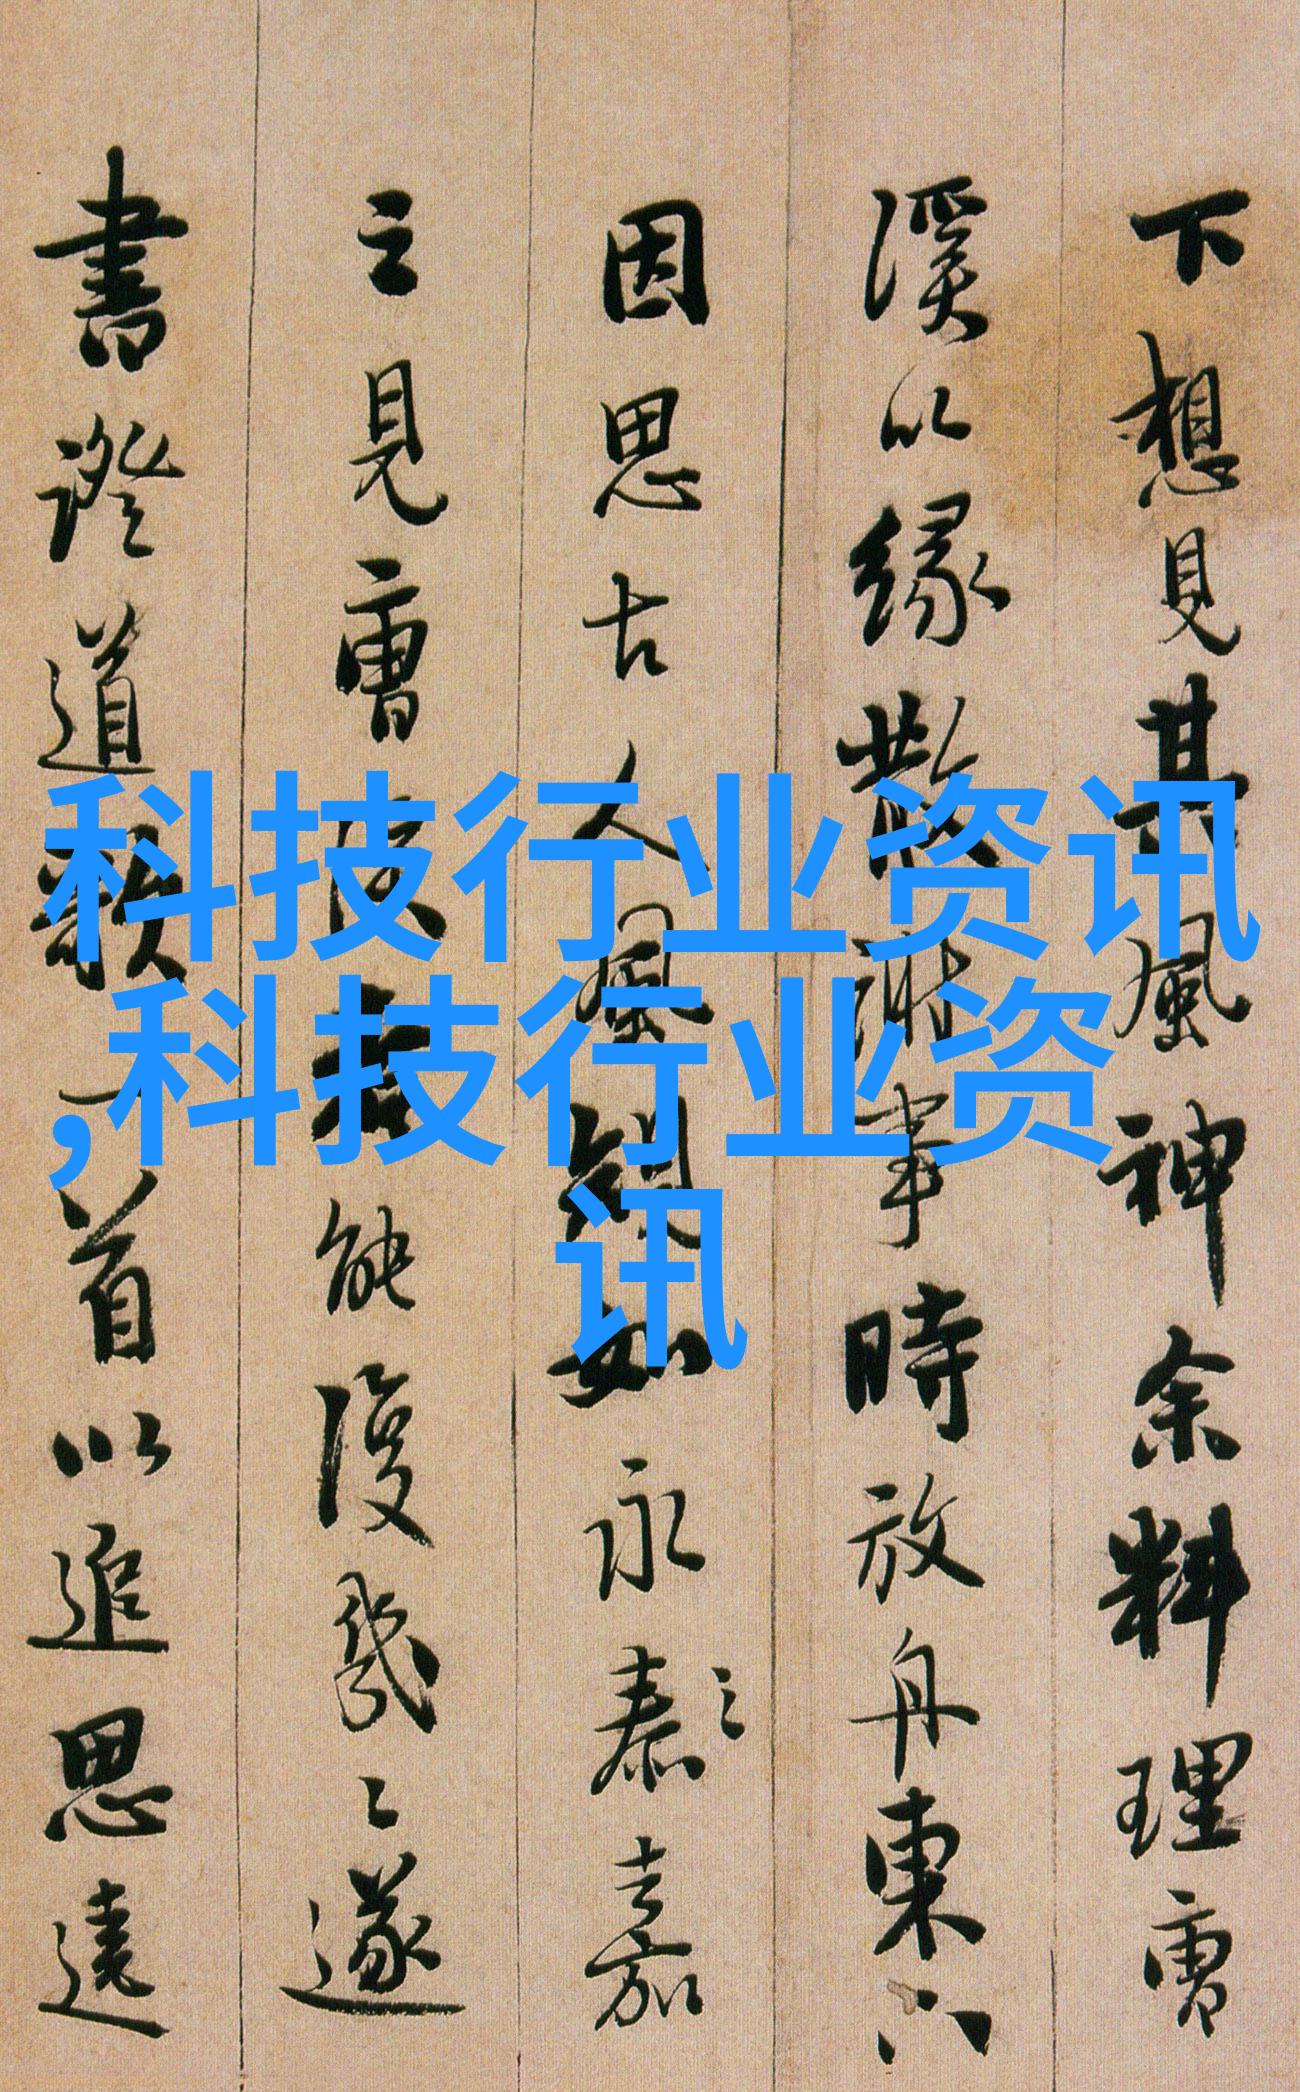 下想見其風神余料理曹
溪以緣散
事時放舟東下
因思古人風
如永泰之寺嘉
之見曹
能復幾〻遂
書證道歌一首以追思遠
科技行业资讯
,科技行业资
讯